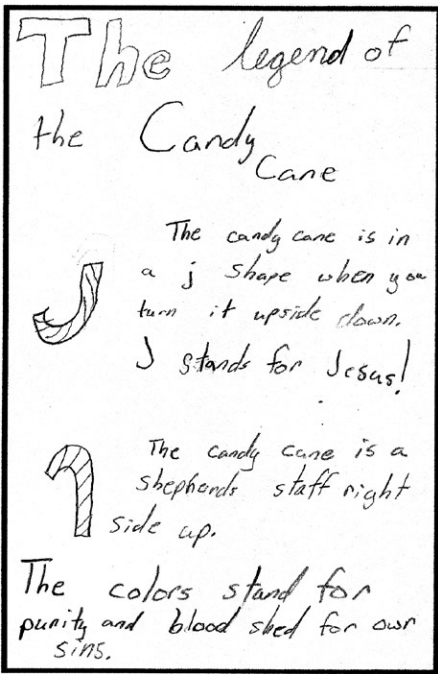 The legend of
the Candy
Cane
The candy cane is in
a j shape when you
turn it upside down.
J stands for Jesus!
The candy cane is a
shepherds staff right
side up.
The colors stand for
purity and blood shed for our
sins.